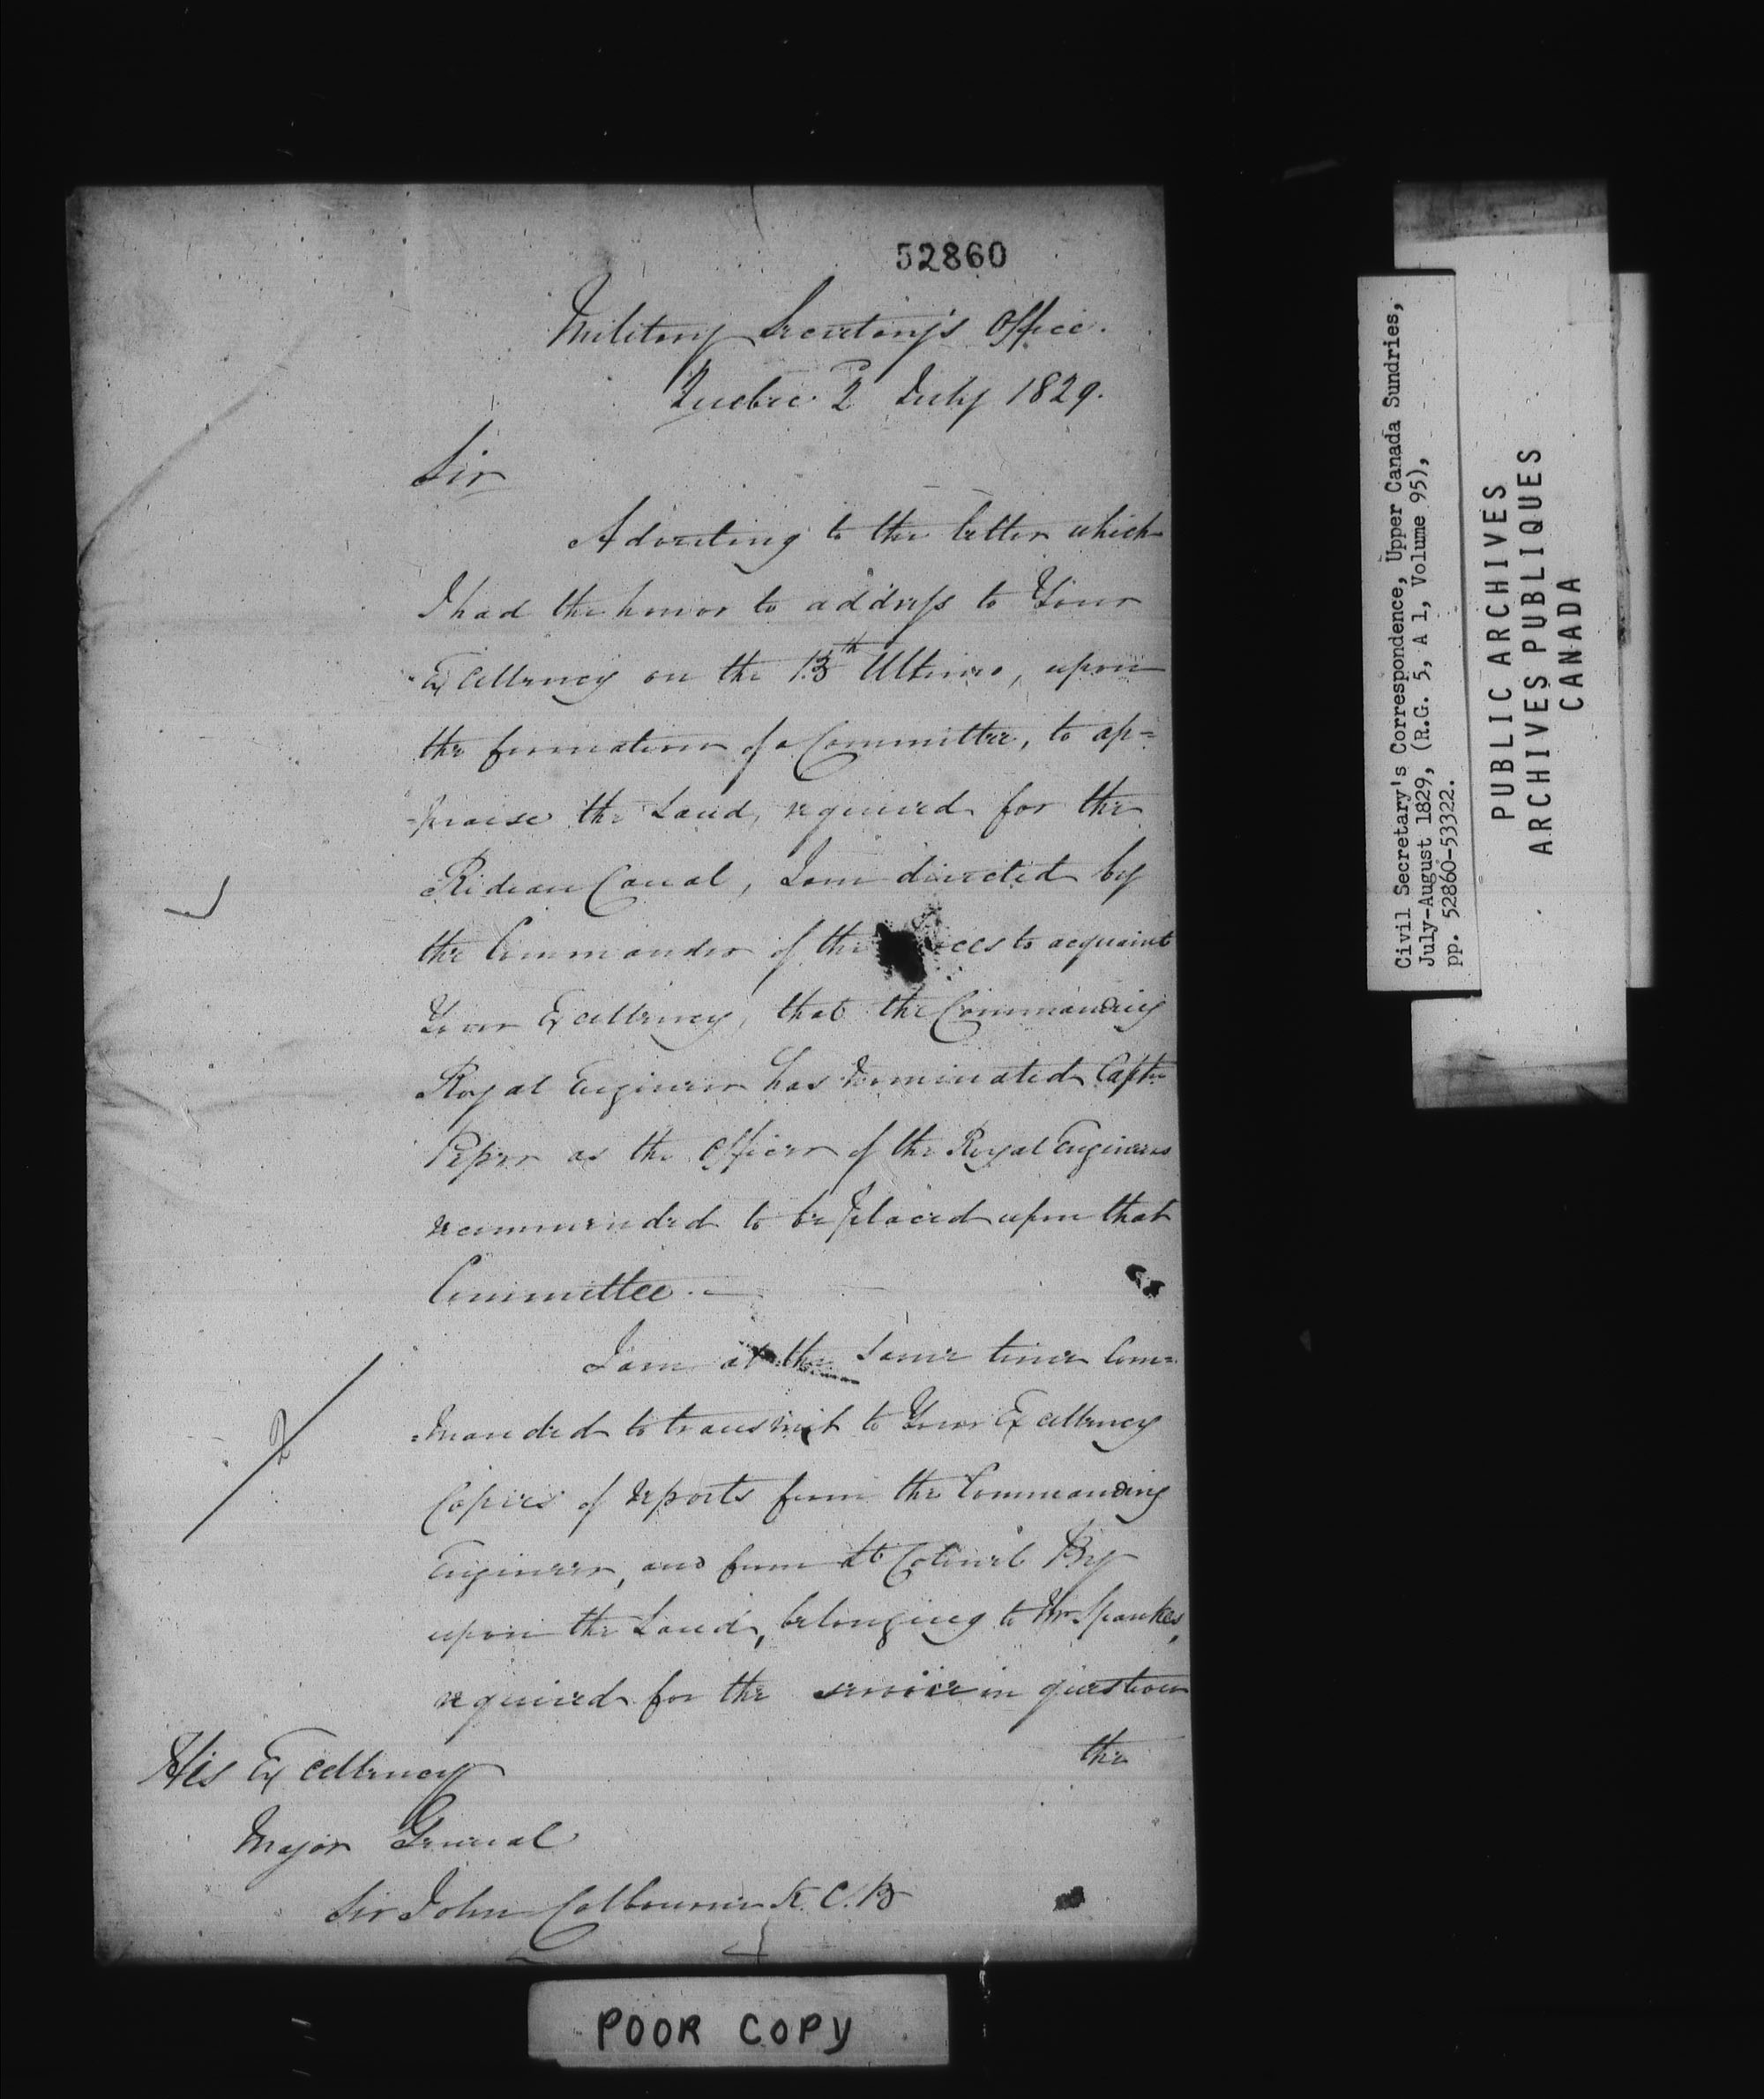 52860
Military Secretary's Office.
Quebec 2 July 1829.
Sir
Adverting to the letter which
I had the honor to address to Your
Excellency on the 13th Ultimo, upon
the formation of a Committee, to ap=
=praise the Land, required for the
Rideau Canal, I am directed by
the Commander of the to acquaint
Your Excellency, that the Commanding
Royal Engineer has nominated Captn
Piper as the Officer of the Royal Engineers
recommended to be placed upon that
Committee.—
I am at the same time Com=
=manded to transmit to Your Excellency
Copies of reports from the Commanding
Engineer, and from Lt Colonel By
upon the Land, belonging to Mr. Sparkes,
required for the service in question
the
His Excellency
Major General
Sir John Colbourne K.C.B
POOR COPY
Civil Secretary's Correspondence, Upper Canada Sundries,
July-August 1829, (R.G. 5, A 1, Volume 95),
pp. 52860-53322.
PUBLIC ARCHIVES
ARCHIVES PUBLIQUES
CANADA